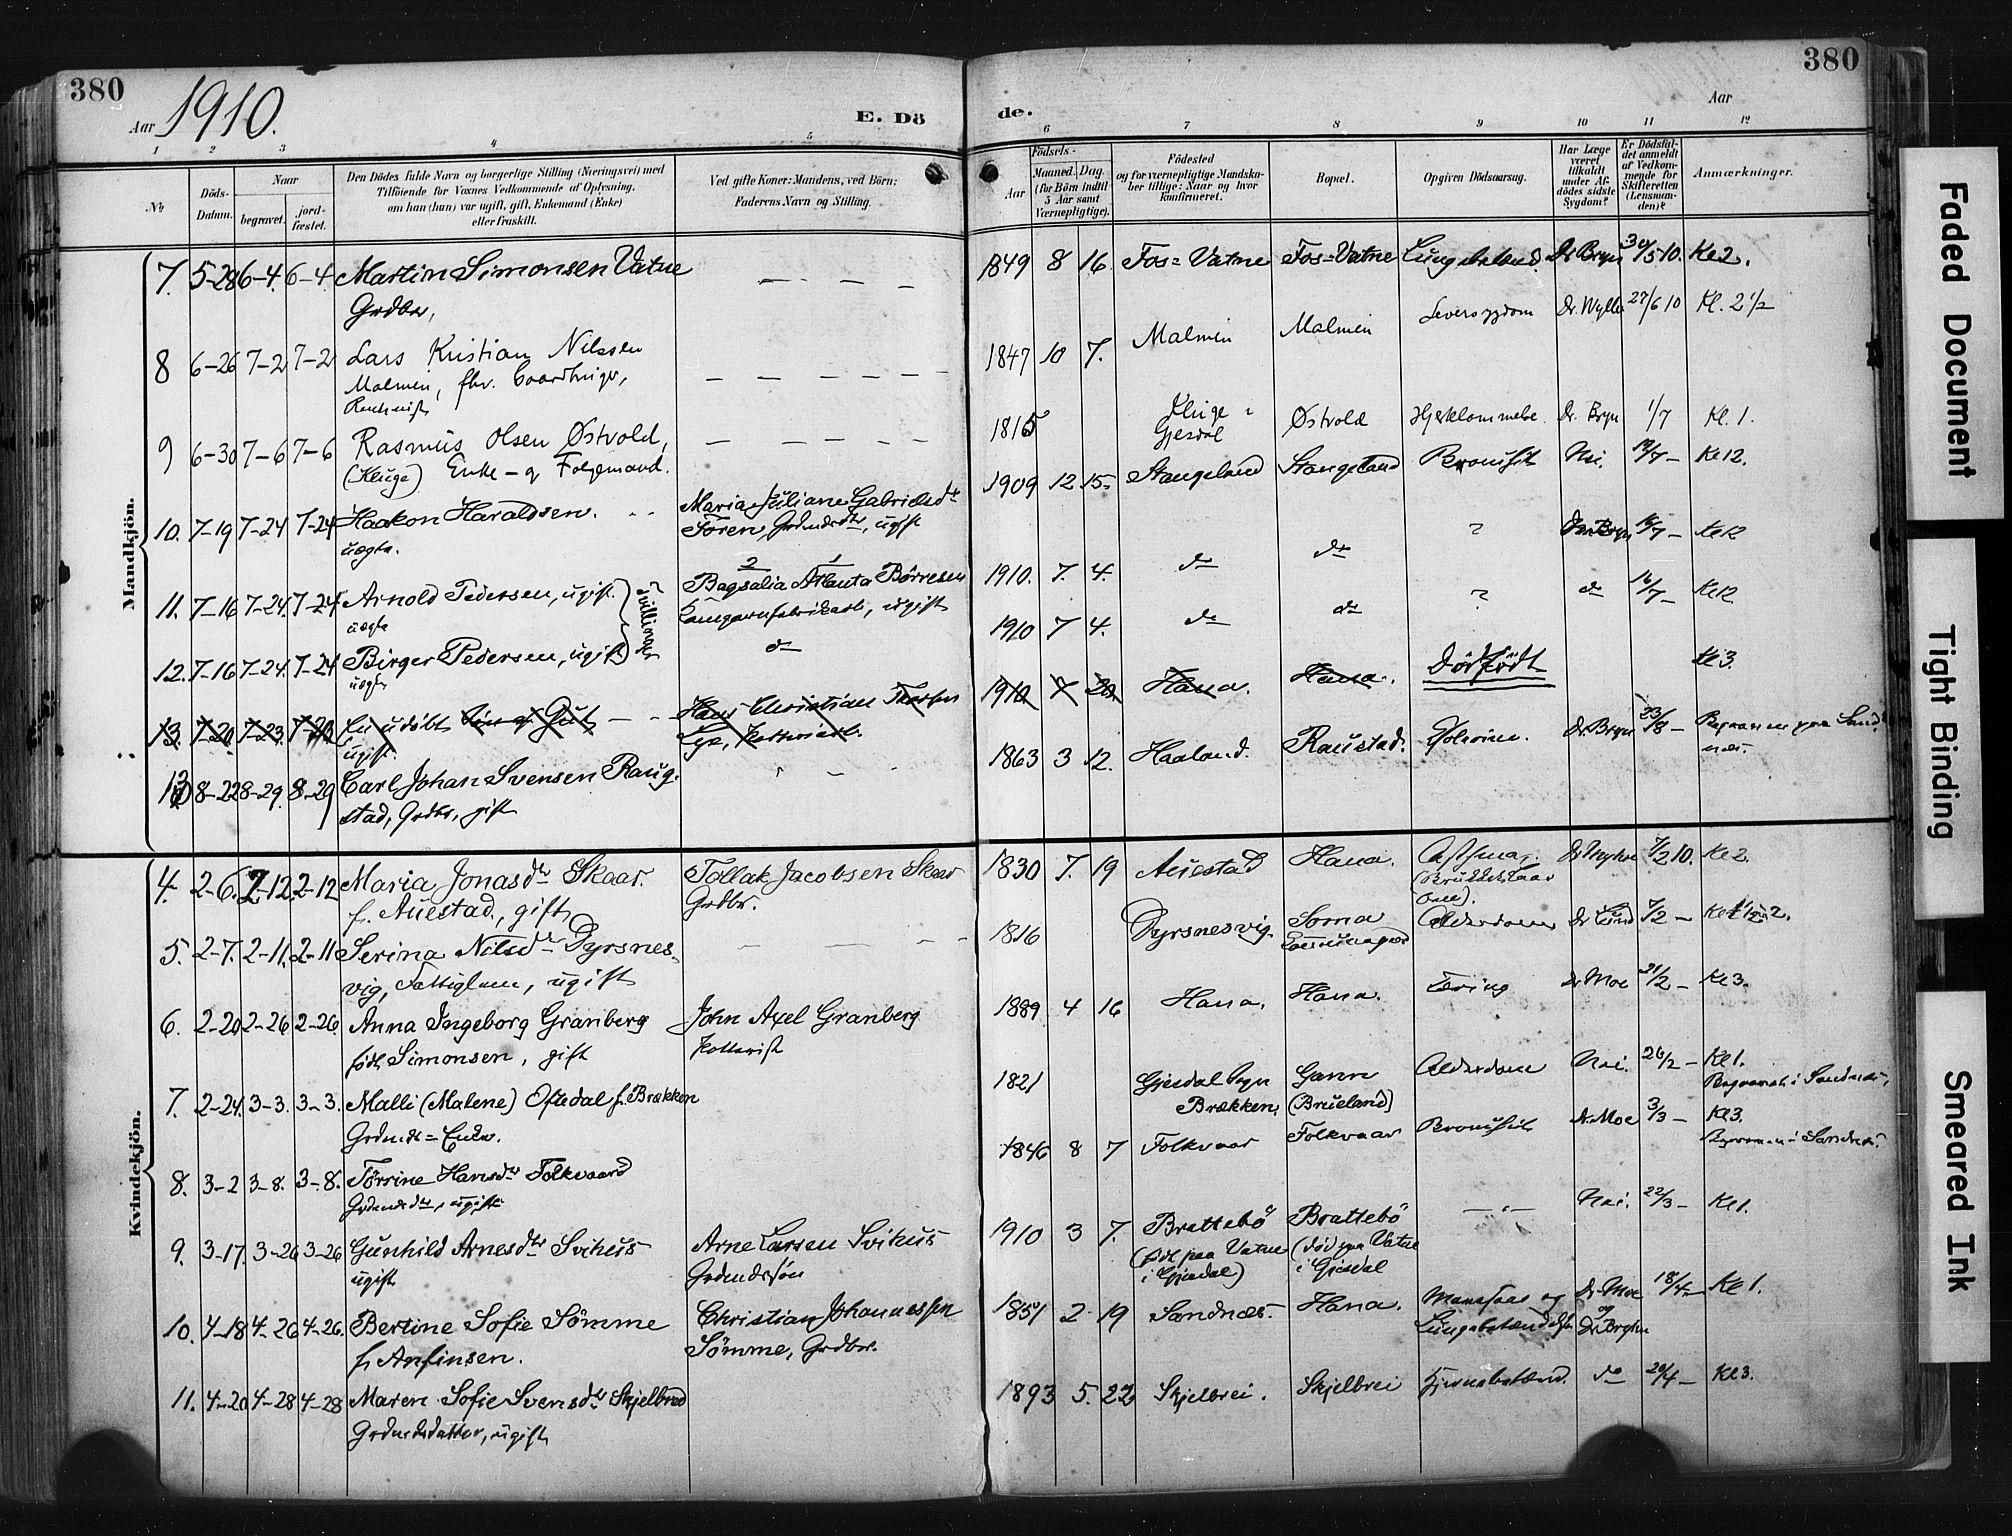 380
380
Aar 1910.
E. Dö
de.
Aar
1 2 3 4 5 6 7 8 9 10 11 12
No
Döds-Datum.
Naar
begravet.
jord-fæstet.
Den Dödes fulde Navn og borgerlige Stilling (Næringsvei) med
Tilföiende for Voxnes Vedkommende af Oplysning,
om han (hun) var ugift, gift, Enkemand (Enke)
eller fraskilt.
Ved gifte Koner: Mandens, ved Börn:
Faderens Navn og Stilling.
Födsels-
Aar
Maaned. Dag.
(for Börn indtil
5 Aar samt
Værnepligtige).
Födested
og for værnepligtige Mandska-
ber tillige: Naar og hvor
konfirmeret.
Bopæl.
Opgiven Dödsaarsag.
Har Læge
været
tilkaldt
under Af-
dödes sidste
Sygdom?
Er Dödsfal-
det anmeldt
af Vedkom-
mende for
Skifteretten
(Lensman-
den)?
Anmærkninger.
Mandkjön.
7. 5-28 6-4. 6-4. Martin Simonsen Vatne — — — — 1849 8 16 Fos=Vatne Fos=Vatne Lungebetænd. Dr Bryn 30/5 10. Kl 2.
Grdbr,
8 6-26 7-2 7-2 Lars Kristian Nilssen 1847 10 7. Malmin Malmin Leversygdom Dr. Wylle 27/6 10 Kl. 2 1/2
Malmin, fhv.
9 6-30 7-6 7-6 Rasmus Olsen Østvold, — — — — — 1815 Kluge i Gjesdal Østvold Dr. Bryn 1/7 Kl. 1.
(Kluge) Enke- og Folgemand.
10. 7-19 7-24 7-24 Haakon Haraldsen. Maria Juliane Gabrielsdtr 1909 12 15. Stangeland Stangeland Bronchit Nei. 19/7 - Kl 12.
uægte. Foren, Grdmdsdtr, ugift
11. 7-16 7-24. 7-24 Arnold Pedersen, ugift. Tvillinger Bagsalia Atlanta Börresen 1910. 7. 4. do do ? Dr Bryn 16/7 - Kl 12
uægte Kamgarnfabrikarb, ugift
12. 7-16 7-24. 7-24 Birger Pedersen, ugift do 1910 7 4. do do ? do 16/7 - Kl 12.
uægte
13. 7-20 7-23. 7-23 En udöbt Gut Hans Christian 1910 7 20 Hana. Hana. Dödfödt Kl 3.
ugift. Lye,
13 8-22 8-29. 8-29 Carl Johan Svensen Raug- 1863 3 12. Haaland. Raustad. Dr Bryn 23/8 - Begraven paa Sand-
stad, Grdbr, gift næs.
Kvindekjön.
4. 2-6. 2-12. 2-12 Maria Jonasdtr Skaar. Tollak Jacobsen Skaar 1830 7. 19 Auestad Hana. Asthma, 7/2 10. Kl 2
f. Auestad, gift Grdbr.
5. 2-7. 2-11. 2-11 Serina Nilsdtr Dyrsnes- — — — — 1816 Dyrsnesvig. Soma Alderdom Dr Lund 7/2 - 2.
vig, Fattiglem, ugift
6. 2-20 2-26 2-26 Anna Ingeborg Granberg John Axel Granberg 1889 4 16 Hana. Hana. Tæring Dr Moe 21/2 - Kl 3.
födt Simonsen, gift Potterist
7. 2-24. 3-3. 3-3. Malli (Malene) Oftedal f. Brækken 1821 Gjesdal Sogn Brækken, Gann (Brueland) Alderdom Nei. 26/2 - Kl 1. Begravet i Sandnæs.
Grdmds=Enke.
8. 3-2 3-8. 3-8. Törrine Hansdtr Folkvaard 1846 8 7 Folkvaar Folkvaar Bronchit Dr. Moe 3/3 - Kl 3. Begraven i Sandnæs.
Grdmdsdtr, ugift
9. 3-17. 3-26 3-26 Gunhild Arnesdtr Svihus Arne Larsen Svihus 1910 3 7. Brattebö Brattebö —"— Nei. 22/3 - Kl 1.
ugift Grdmdssön (födt paa Vatne i Gjesdal) (död paa Vatne i Gjesdal
10. 4-18 4-26 4-26. Bertine Sofie Sömme Christian Johannessen 1851 2 19 Sandnæs. Hana. og Lungebetændelse Dr. Moe og Dr Bryhn 18/4 - Kl 1.
f. Anfinsen. Sömme, Grdbr.
11. 4-20 4-28 4-28 Maren Sofie Svensdtr Skjelbred 1893 5. 22. Skjelbrei. Skjelbrei Hjernebetænd. do 20/4 - Kl 3.
Grdmdsdatter, ugift
Faded Document
Tight Binding
Smeared Ink